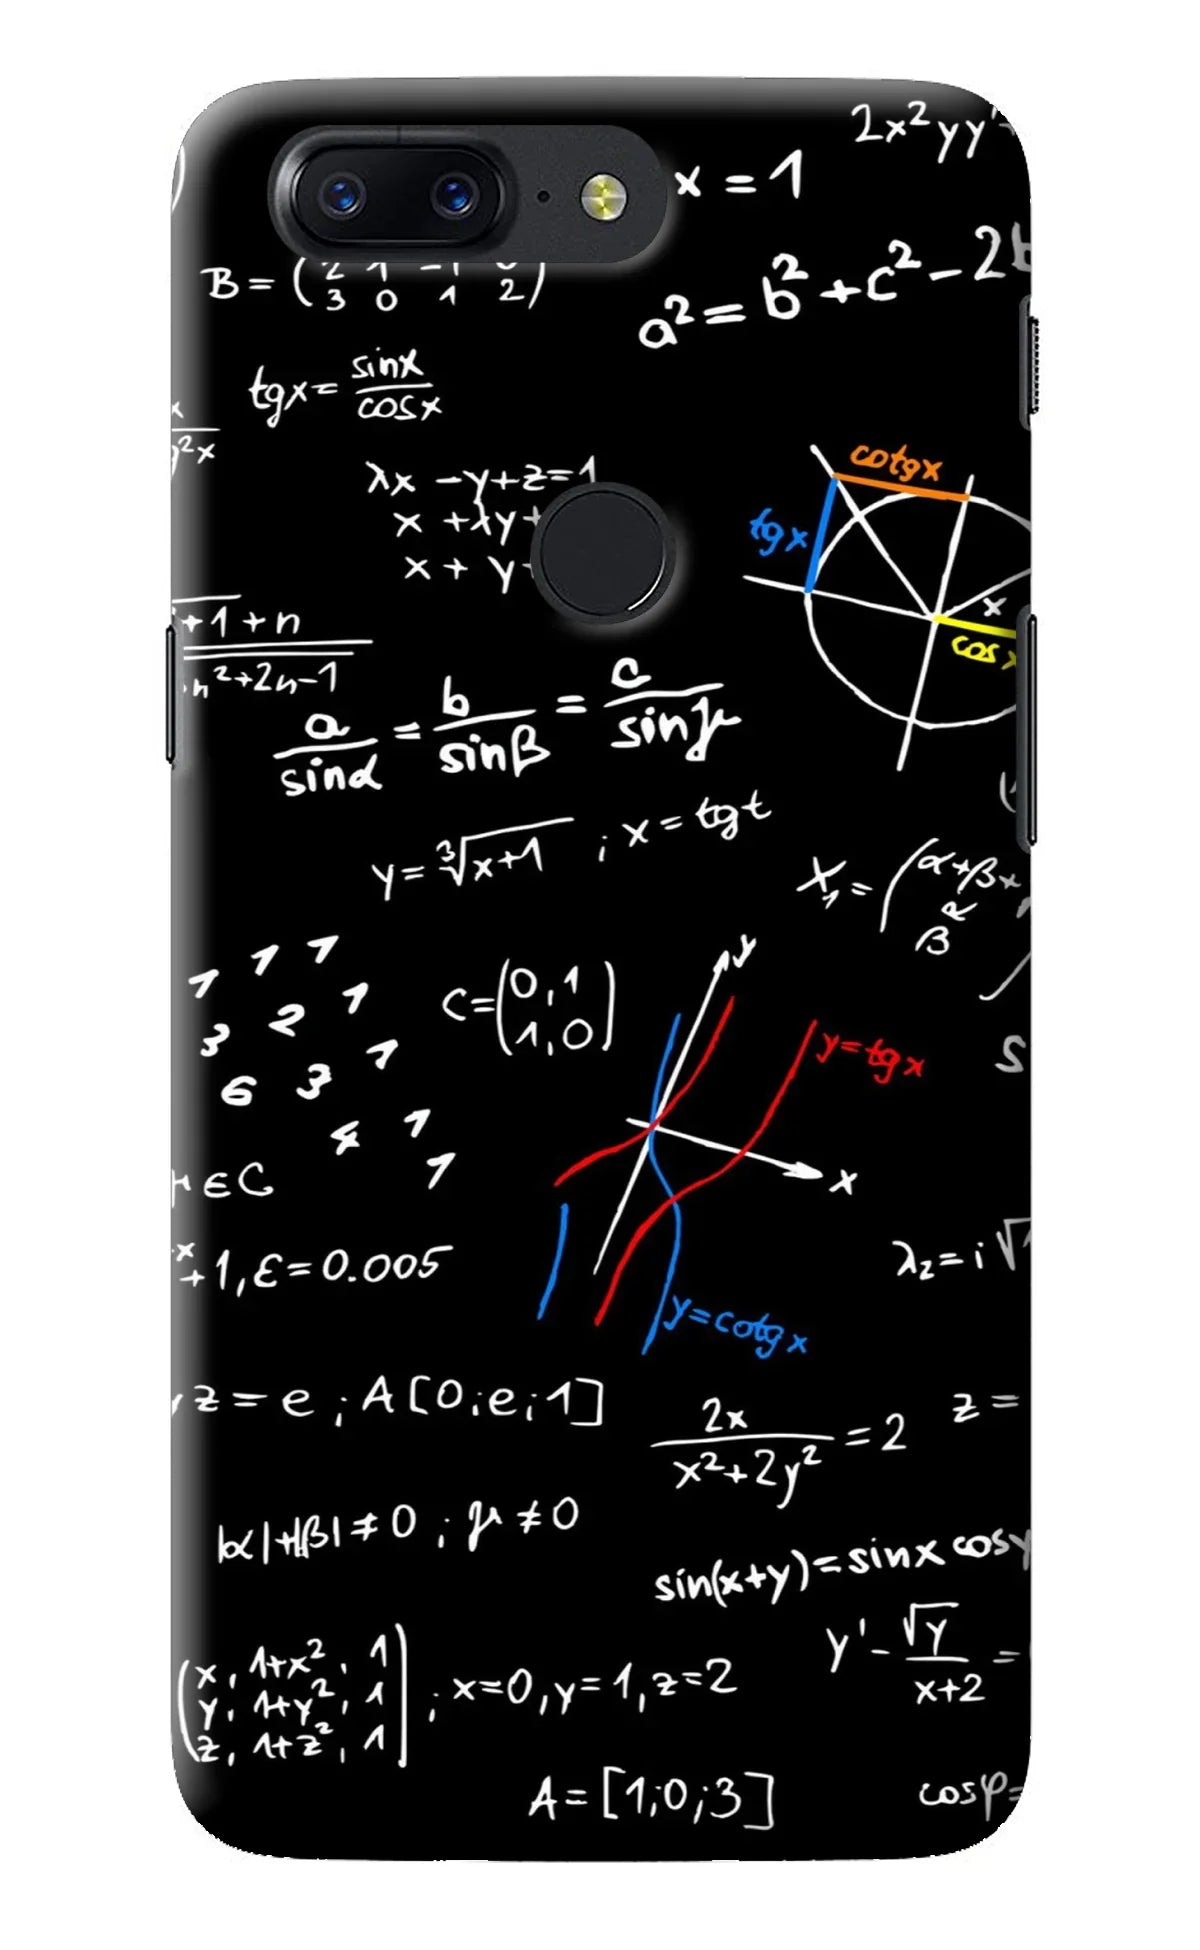 2x²yy'
x = 1
B = (2 1 -1 0
3 0 1 2)
a² = b² + c² - 2b
tgx = sinx
cosx
x
g²x
cotgx
tgx
x
cos x
λx - y + z = 1
x + λy +
x + y -
+1 + n
n² + 2n - 1
a/sinα = b/sinβ = c/sinγ
y = ∛x+1 ; x = tgt
X₁ = (α+β+
β R
1 1 1
3 2 1
6 3 1
4 1
1
C = (0,1
1,0)
y
y=tgx
x
y=cotgx
S
∈C
x
+1, ε = 0.005
λ₂ = i√
z = e ; A[0;e;1]
2x
x²+2y² = 2
z =
|α|+|β| ≠ 0 ; μ ≠ 0
sin(x+y) = sinx cosy
y' - √y
x+2 =
(x, 1+x², 1
y, 1+y², 1
z, 1+z², 1) ; x=0, y=1, z=2
A = [1;0;3]
cosφ=